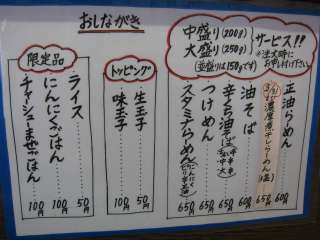 おしながき
中盛り(200g)
大盛り(250g)
(並盛りは150gです)
サービス!!
※注文時に
お申し付け下さい
正油らーめん 600円
油そば 600円
辛くち油そば 650円
つけめん 650円
スタミナらーめん 650円
トッピング
生玉子
味玉子 100円
限定品
ライス 50円
にんにくごはん 100円
チャーシューまぜごはん 100円